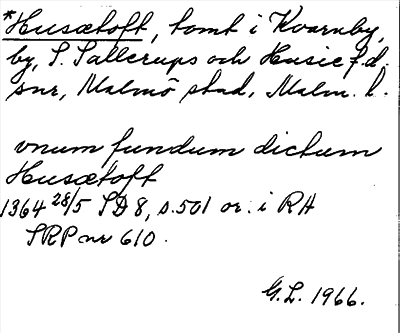 *Husætoft, tomt i Kvarnby,
by, S. Sallerups och Husie f.d.
snr, Malmö stad, Malm. l.
vnum fundum dictum
Husætoft
1364 28/5 SD 8, s. 501 or. i RA
SRP nr 610.
G.L. 1966.